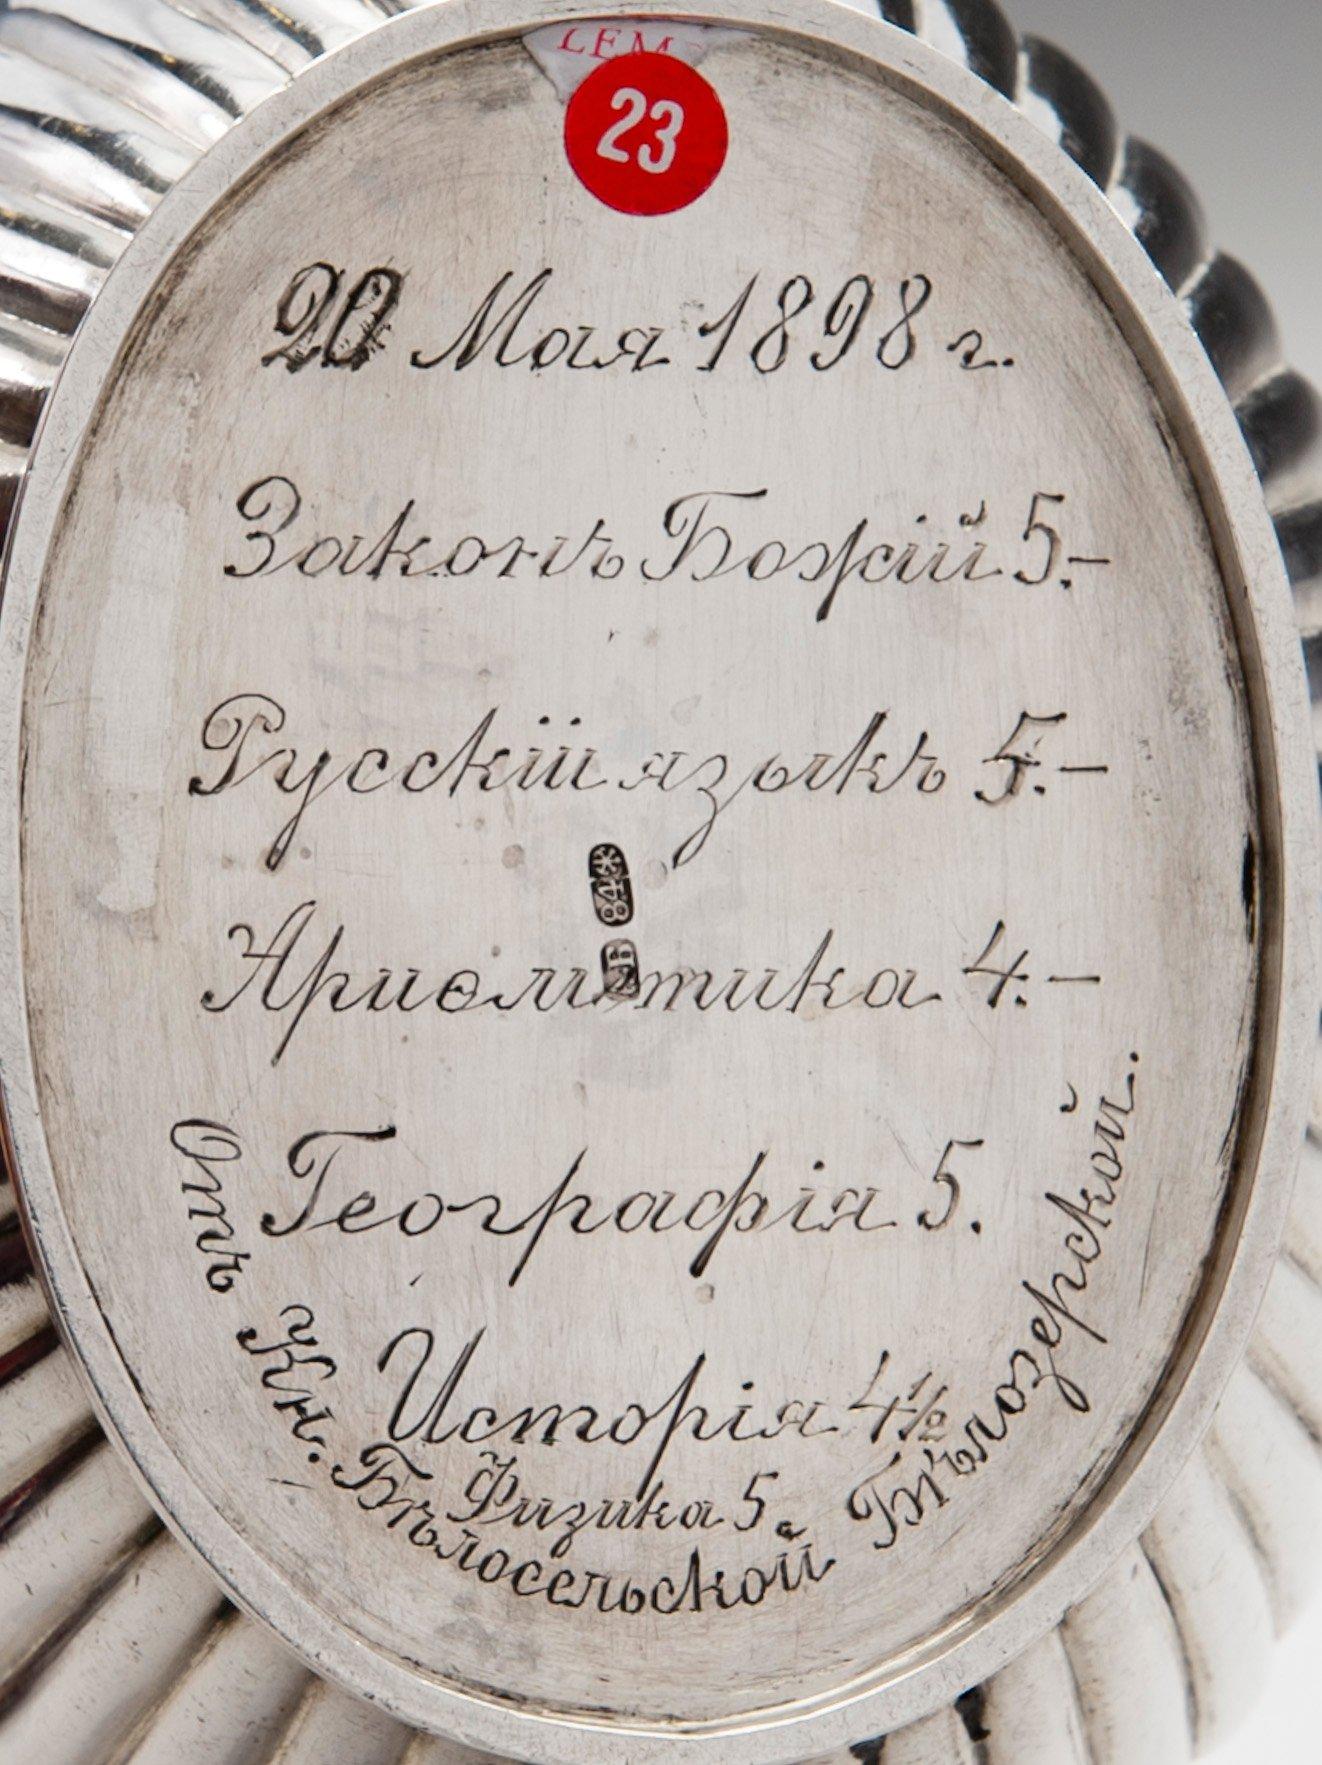 LEM
23
20 Мая 1898 г.
Законъ Божій 5.-
Русскій языкъ 5.-
84
Ариѳметика 4.-
Географія 5.
Исторія 4½
Физика 5.
Отъ Кн. Бѣлосельской Бѣлозерской.